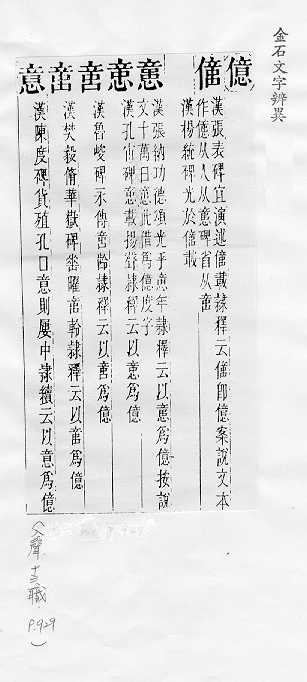 金石文字辨異
億
漢張表碑宜演遠億載隸釋云僮即億案說文本
作億从人从意碑省从啻
漢楊統碑光於億載
漢張納功德頌光乎意年隸釋云以意爲億按說
文十萬曰意此借爲億度字
漢孔宙碑意載揚聲隸釋云以意爲億
漢魯峻碑永傳啻齡隸釋云以啻爲億
漢樊毅脩華嶽碑巒曜啻幹隸釋云以啻爲億
意
漢陳度碑貨殖孔口意則屢中隸續云以意爲億
(入聲 十三職 P.929)
P.929